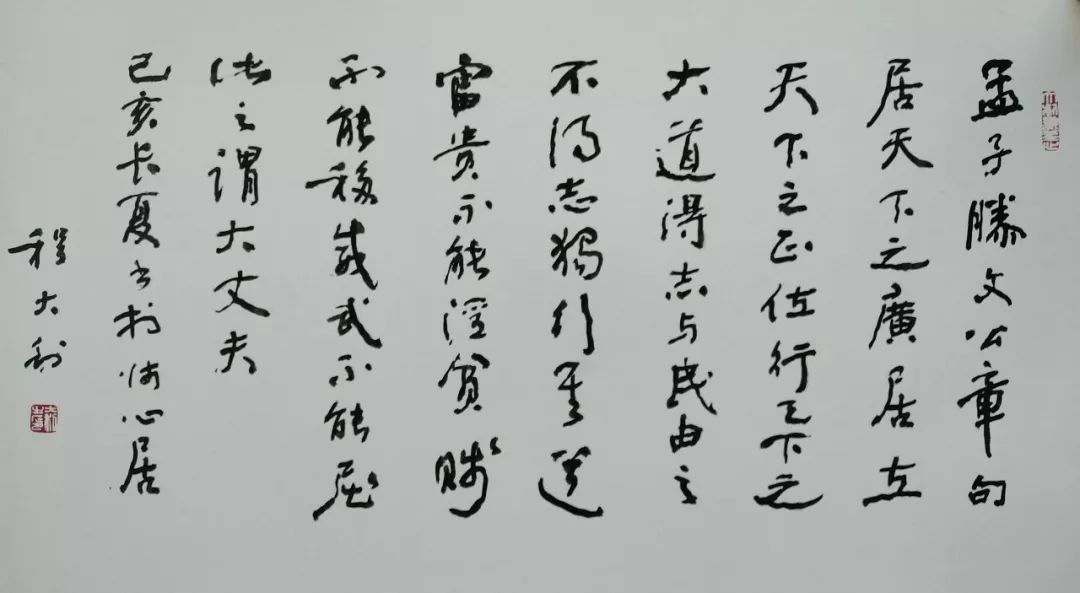 孟子滕文公章句
居天下之廣居立
天下之正位行天下之
大道得志与民由之
不得志獨行其道
富貴不能淫貧賤
不能移威武不能屈
此之謂大丈夫
己亥长夏书於师心居
程大利